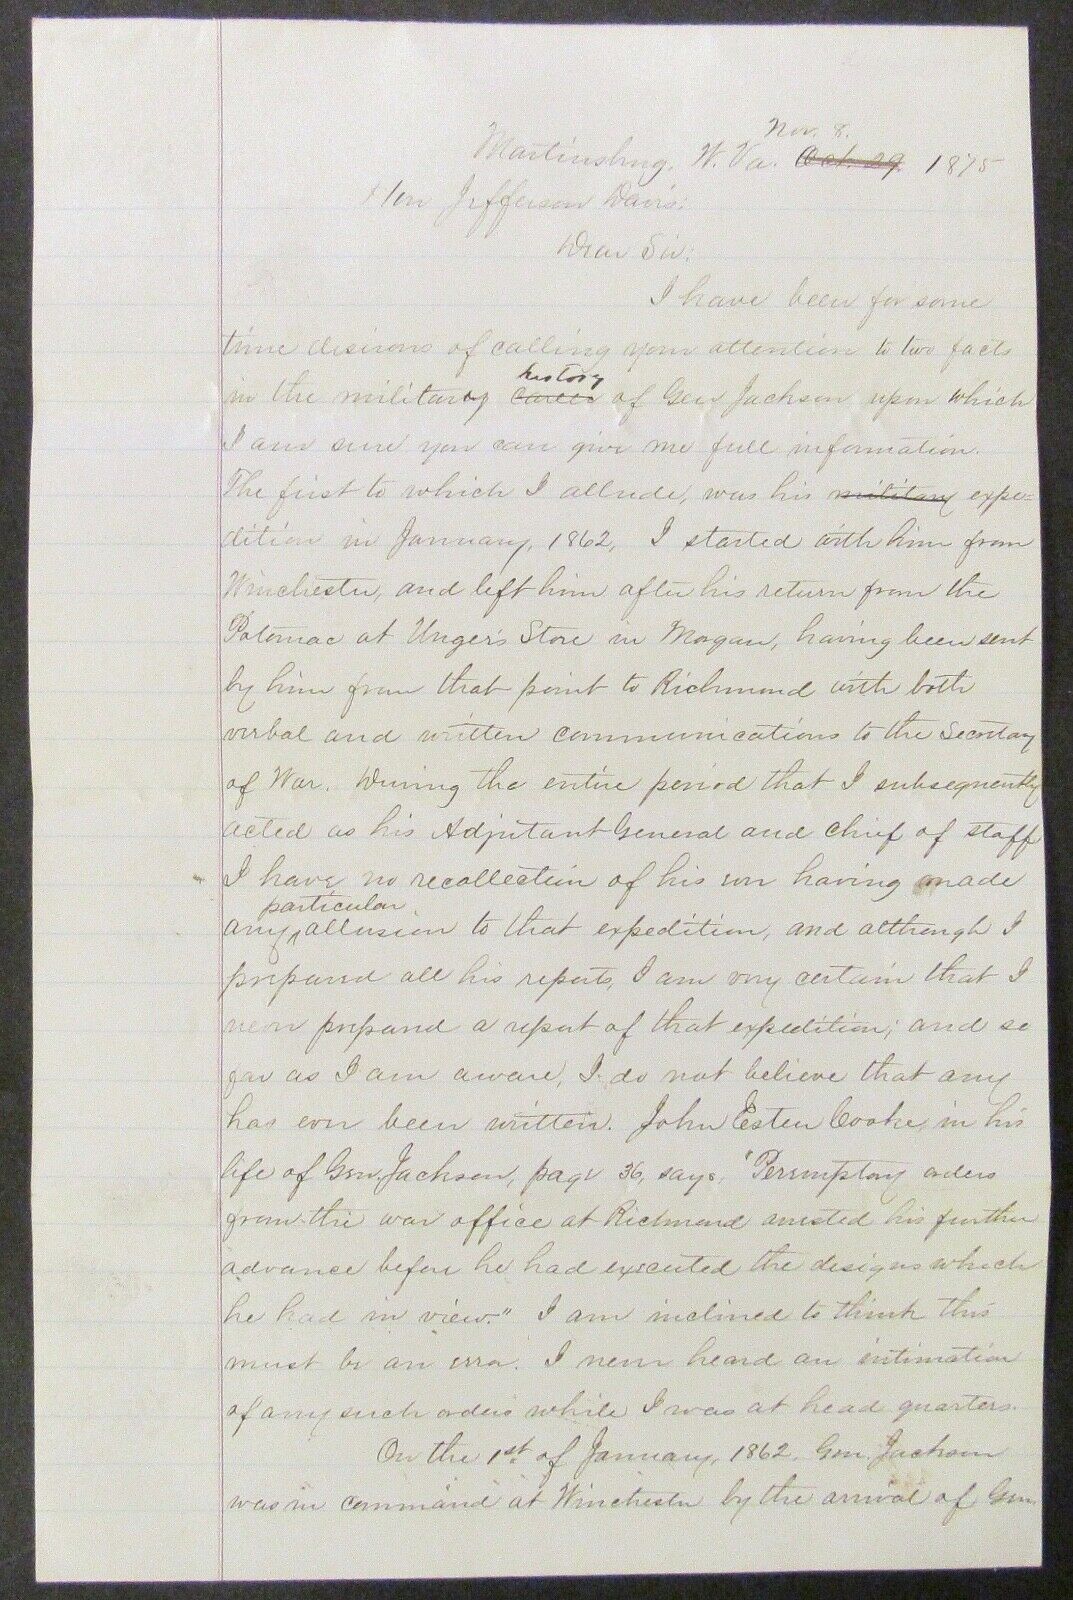 Nov. 8.
Martinsburg, W. Va. Oct. 29. 1875
Hon Jefferson Davis:
Dear Sir:
I have been for some
time desirous of calling your attention to two facts
history
in the military career of Gen Jackson upon which
I am sure you can give me full information.
The first to which I allude, was his military expe=
dition in January, 1862, I started with him from
Winchester, and left him after his return from the
Potomac at Unger's Store in Morgan, having been sent
by him from that point to Richmond with both
verbal and written communications to the Secretary
of War. During the entire period that I subsequently
acted as his Adjutant General and chief of staff
I have no recollection of his ever having made
particular
any allusion to that expedition, and although I
prepared all his reports, I am very certain that I
never prepared a report of that expedition; and so
far as I am aware, I do not believe that any
has ever been written. John Esten Cooke, in his
life of Gen. Jackson, page 36, says, "Peremptory orders
from the war office at Richmond arrested his further
advance before he had executed the designs which
he had in view." I am inclined to think this
must be an error. I never heard an intimation
of any such orders while I was at head quarters.
On the 1st of January, 1862, Gen. Jackson
was in command at Winchester by the arrival of Gen.